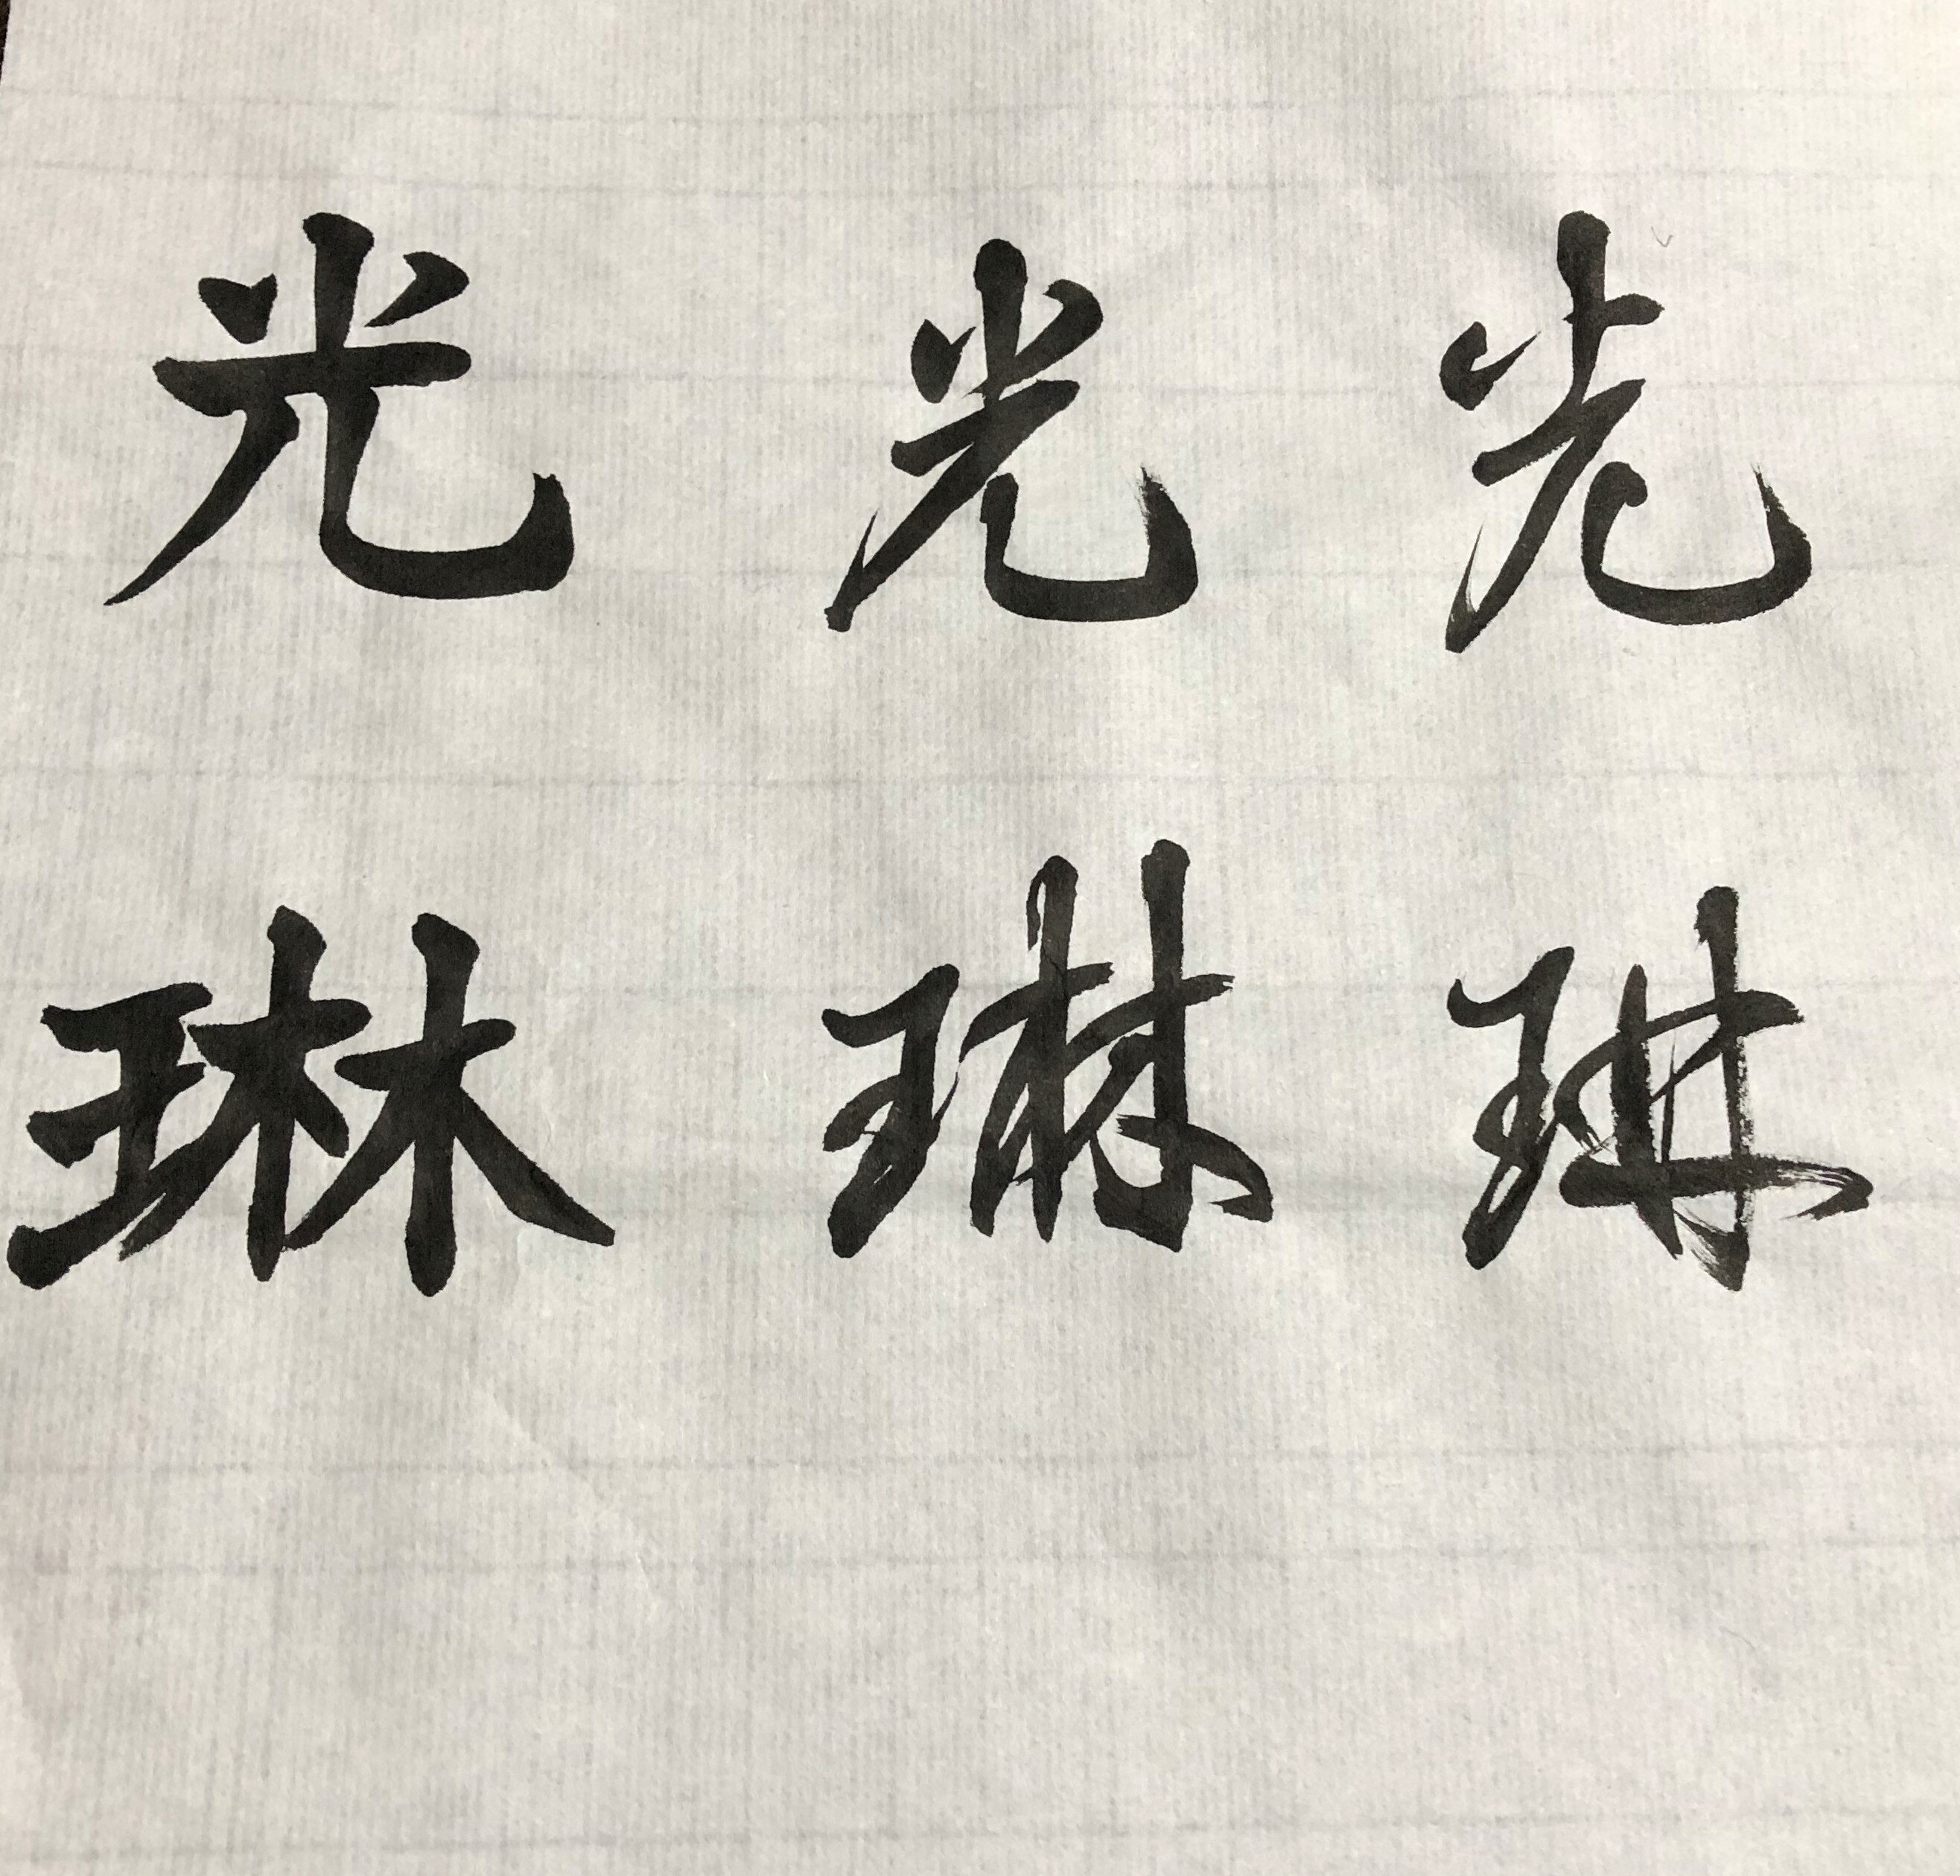 光 光 光
琳 琳 琳